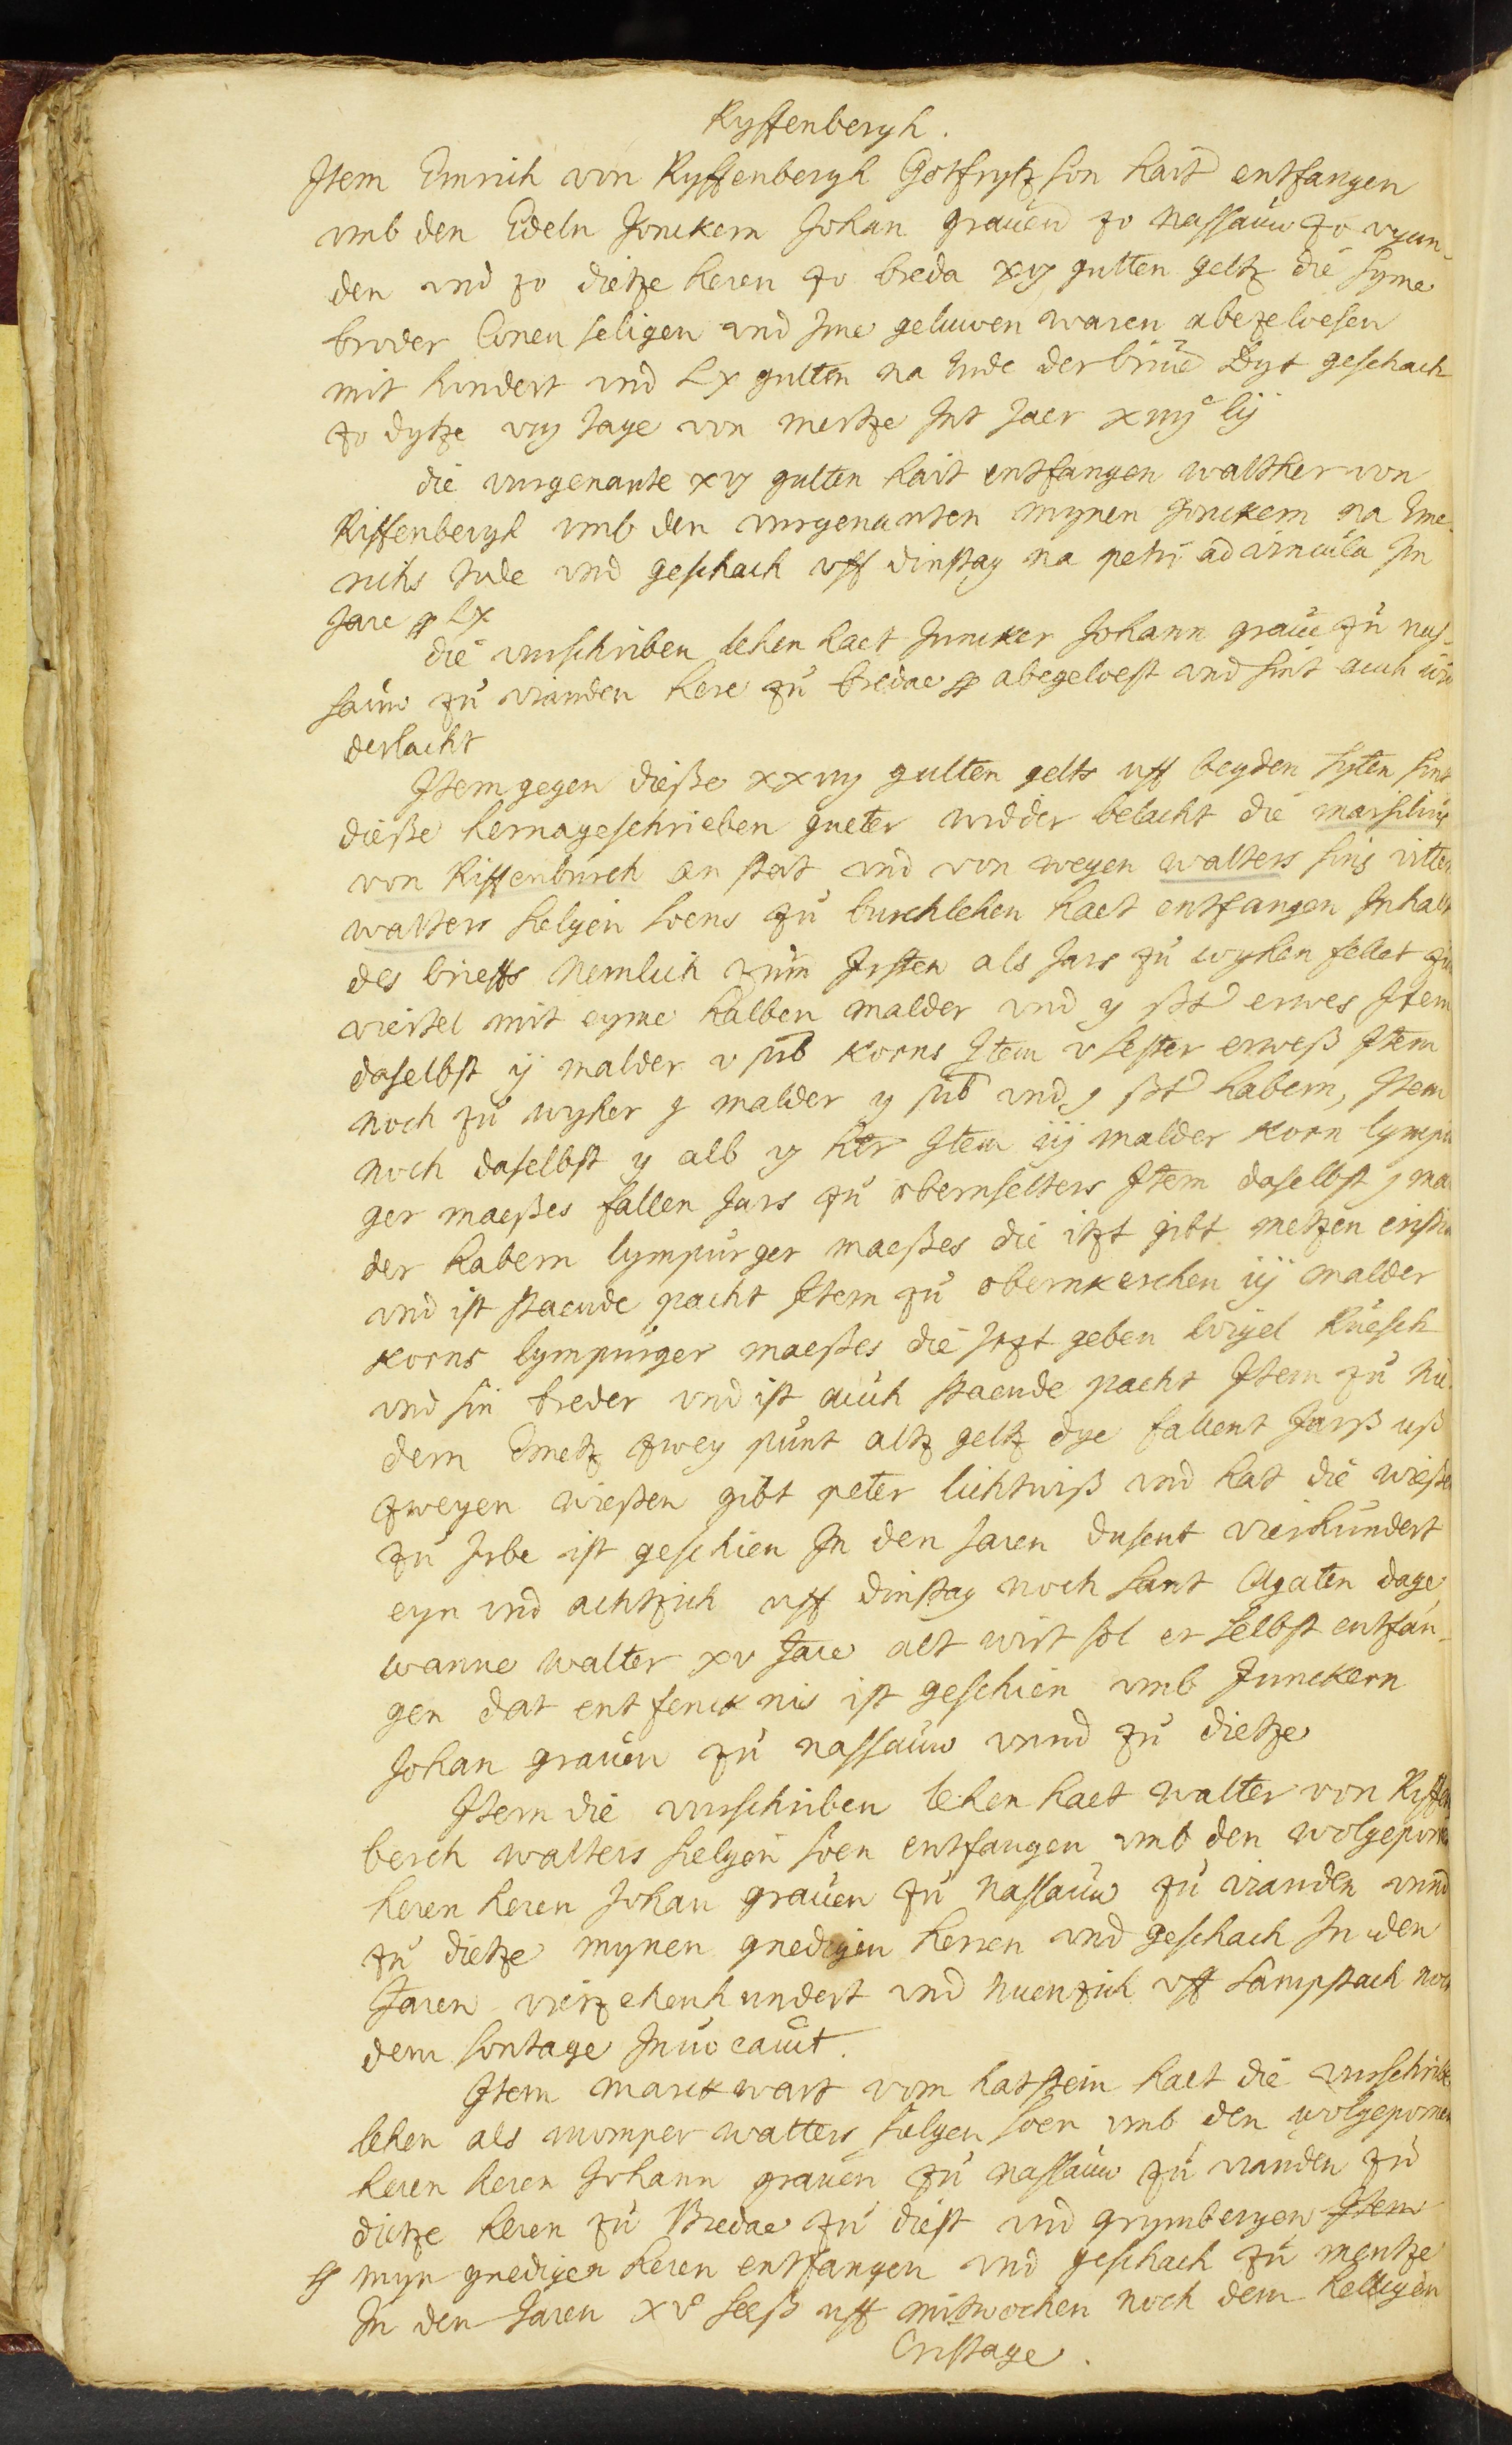 Ryffenbergh.
Item Emrich von Ryffenbergh Gotfrytz son hait entfangen
vmb den Edeln Jonckern Johan grauen zo nassauw zo vyan-
den vnd zo dietze heren zo breda xvj gulten geltz die syme
broder Conen seligen und Ime geluwen waren abezeloesen
mit hundert vnd Lx gulten na Inde der brive Dyt geschach
zo dytze viij tage von mertze Int Jaer xiiijc lij
die vurgenante xvj gulten hait entfangen walther von
Riffenbergh vmb den vurgenanten mynen Jonckern na Eme-
richs tode vnd geschach vff dinstag na petri ad vincula In
Jare Lx
die vurschriben lehen haet Juncker Johann graue zu nas-
sauw zu vianden here zu bredae abegeloest und sint auch
derlacht
Item gegen dieße xxiiij gulten gelts uff beyden syten sint
dieße hernageschrieben gueter widder belacht die marsilius
von Riffenburch an stat und von wegen walters sins
walters selgen soens zu burchlehen haet entfangen Inhalt
des brieffs Nemlich zum Irsten als Jars zu wyhen fellet
vierßel mit eyme halben malder vnd ij erwes Item
daselbst ij malder v korns Item v sester erweß Item
noch zu wyher j malder ij vnd j habern, Item
noch daselbst ij alb ij Item iij malder korn lympu
ger maeßes fallen Jars zu obernselters Item daselbst j mal
der habern lympurger maeßes die itzt gibt metzen
vnd ist staende pacht Item zu obernkerchen iij malder
korns lympurger maeßes die Itzt geben wigel Ruesch
vnd sin breder vnd ist auch staende pacht Item zu Ni
dern Emetz zwey punt altz geltz dye fallent Jarß uß
zweyen wießen gibt peter lichtniß vnd hat die wießen
zu Irbe ist geschien In den Jaren dusent vierhundert
eyn vnd achtzich uff dinstag noch sant Agaten dage
wanne walter xv Jare alt wirt sol er selbst entfan-
gen dat entfencknis ist geschien vmb Junckern
Johan grauen zu nassauw vnnd zu dietze
Item die vurschriben lehen haet walter von Ryffen
berch walters selgen soen entfangen vmb den wolgeporn
heren heren Johan grauen zu Nassauw zu vianden vnnd
zu dietze mynen gnedigen herren vnd geschach In den
Jaren vierzehenhundert vnd Nuenzich vff sampstach noch
dem sontage Inuocauit.
Item marckwart vom hatstein haet die vurschribe
lehen als momper walters selgen soen vmb den wolgepornen
heren heren Johann grauen zu nassauw zu vianden zu
dietze heren zu Bredae zu diest vnd grymbergen Item
myn gnedigen heren entfangen vnd geschach zu mentze
In den Jaren xvc seeß uff mitwochen noch dem helligen
Cristage.